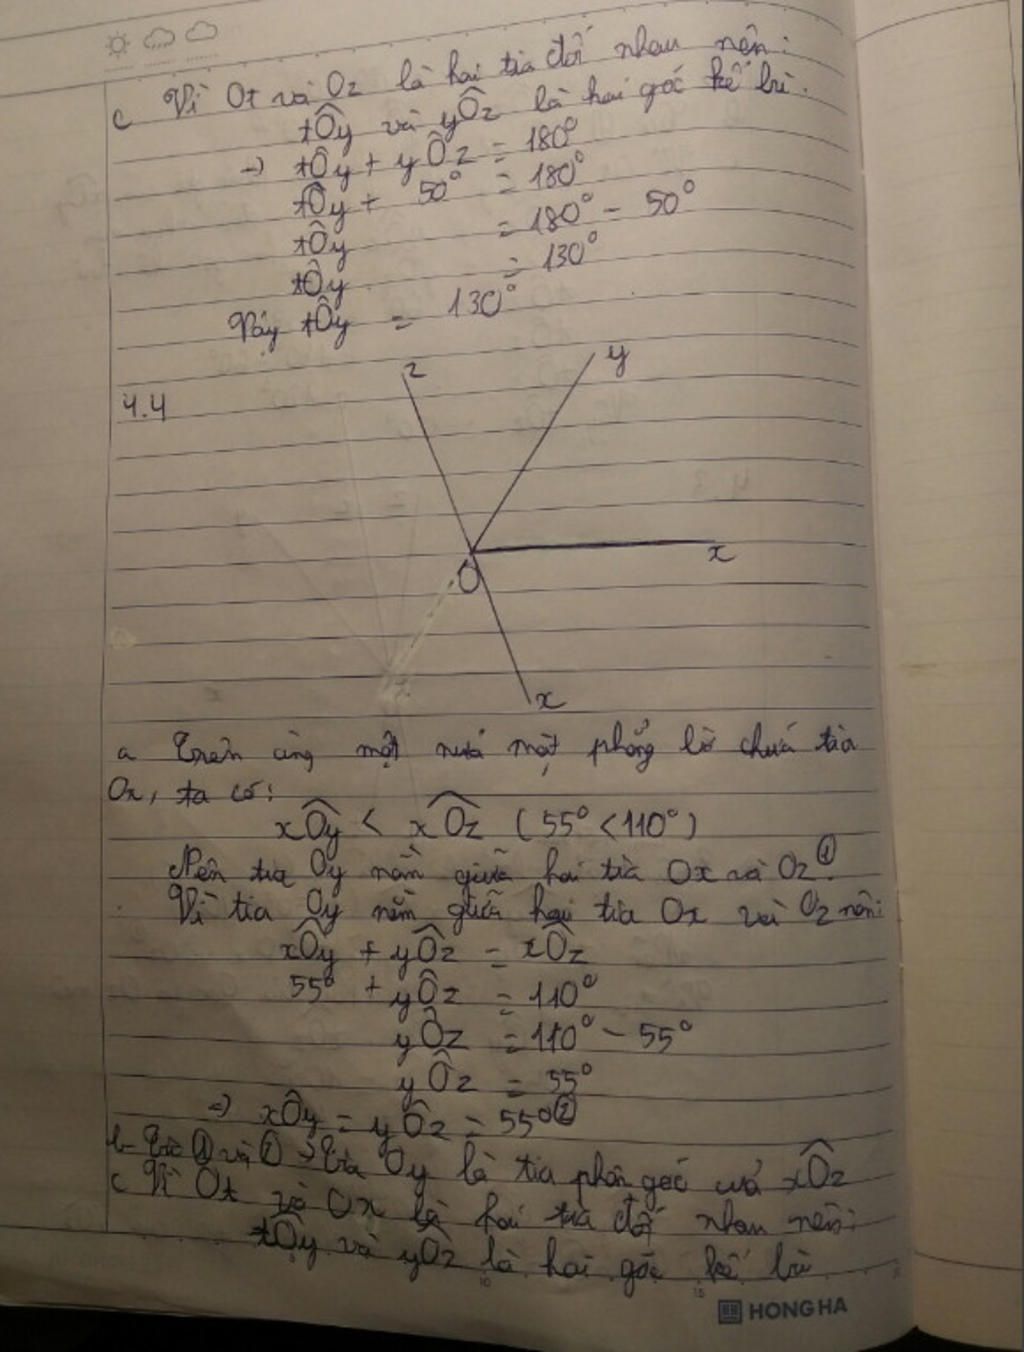 c Vì Ot và Oz là hai tia đối nhau nên:
tÔy và yÔz là hai góc kề bù.
=) tÔy + yÔz = 180°
tÔy + 50° = 180°
tÔy = 180° - 50°
tÔy = 130°
Vậy tÔy = 130°
4.4
z
y
x
O
x
a Trên cùng một nửa mặt phẳng bờ chứa tia
Ox, ta có:
xÔy < xÔz (55° < 110°)
Nên tia Oy nằm giữa hai tia Ox và Oz ①.
Vì tia Oy nằm giữa hai tia Ox và Oz nên:
xÔy + yÔz = xÔz
55° + yÔz = 110°
yÔz = 110° - 55°
yÔz = 55°
=) xÔy = yÔz = 55° ②
b- Từ ① và ② => Tia Oy là tia phân góc của xÔz
c Vì Ot và Ox là hai tia đối nhau nên:
tÔy và yÔz là hai góc kề bù
HONG HA